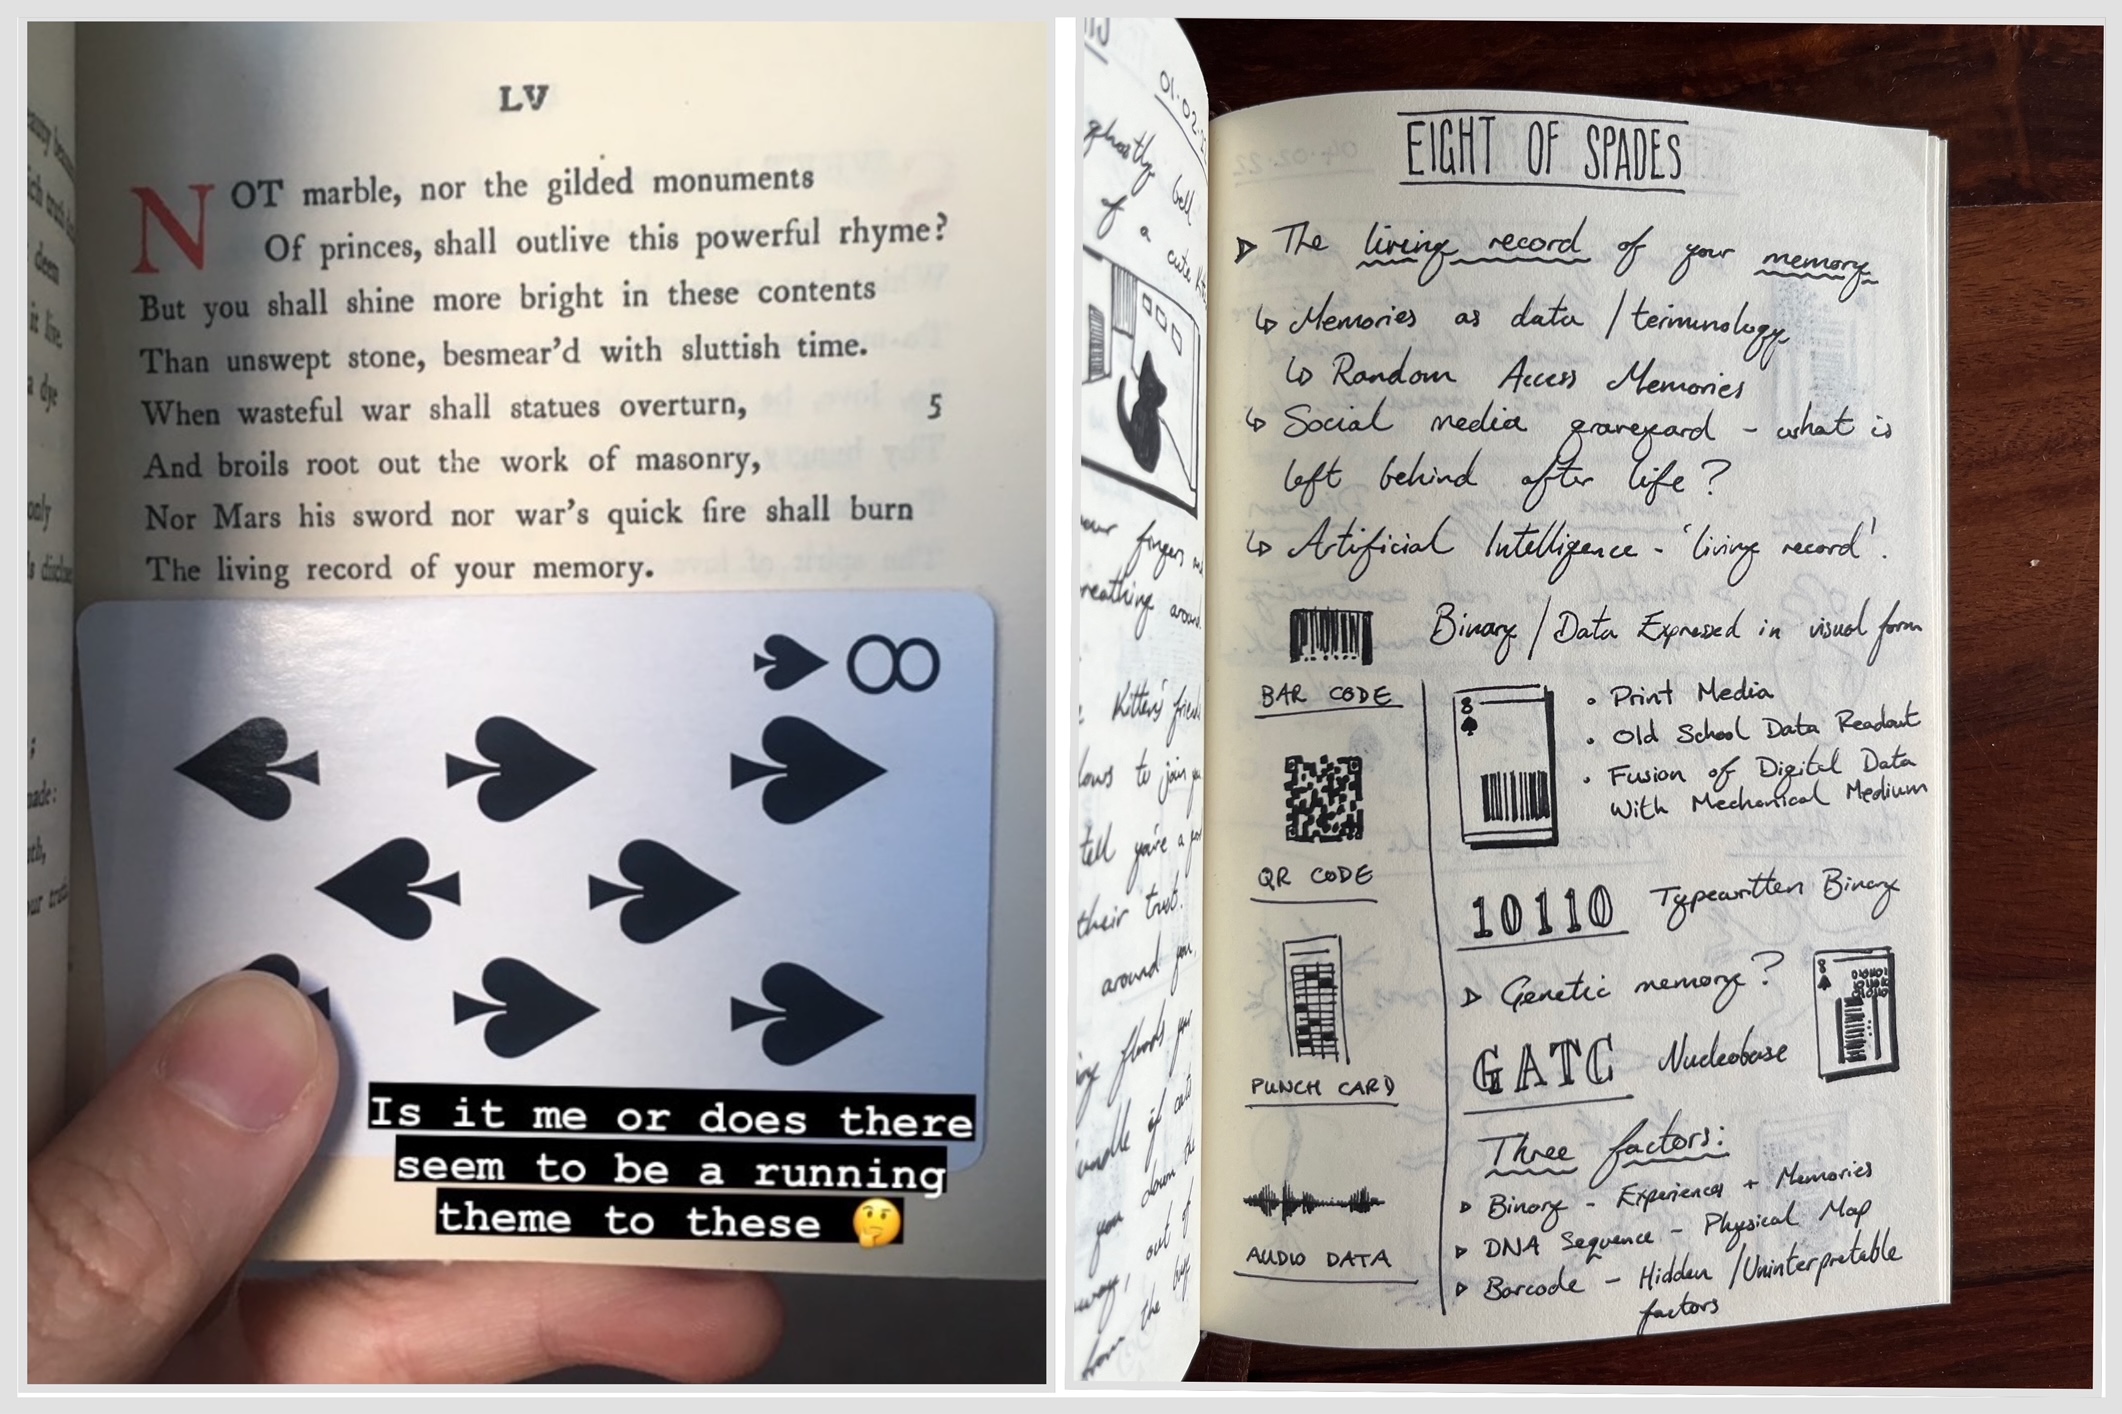 LV
NOT marble, nor the gilded monuments
Of princes, shall outlive this powerful rhyme?
But you shall shine more bright in these contents
Than unswept stone, besmear'd with sluttish time.
When wasteful war shall statues overturn,
5
And broils root out the work of masonry,
Nor Mars his sword nor war's quick fire shall burn
The living record of your memory.
8
Is it me or does there
seem to be a running
theme to these 🤔
deem
it live.
a dye
only
01.02.
ghostly bell
of a cute
your fingers
breathing around
Kitten's
to join
tell you're a
their trust.
around you,
you down the
out of
from the
EIGHT OF SPADES
The living record of your memory
Memories as data / terminology
Random Access Memories
Social media graveyard - what is
left behind after life?
Artificial Intelligence - 'living record'.
Binary / Data Expressed in visual form
BAR CODE
QR CODE
PUNCH CARD
AUDIO DATA
8
• Print Media
• Old School Data Readout
• Fusion of Digital Data
With Mechanical Medium
10110 Typewritten Binary
Genetic memory?
8
GATC Nucleobase
Three factors:
Binary - Experiences + Memories
DNA Sequence - Physical Map
Barcode - Hidden / Uninterpretable
factors